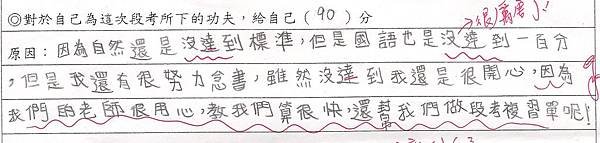 ◎對於自己為這次段考所下的功夫，給自己（90）分
很厲害了！
原因：因為自然還是沒達到標準，但是國語也是沒達到一百分
，但是我還有很努力念書，雖然沒達到我還是很開心，因為
我們的老師很用心，教我們算很快，還幫我們做段考複習單呢！